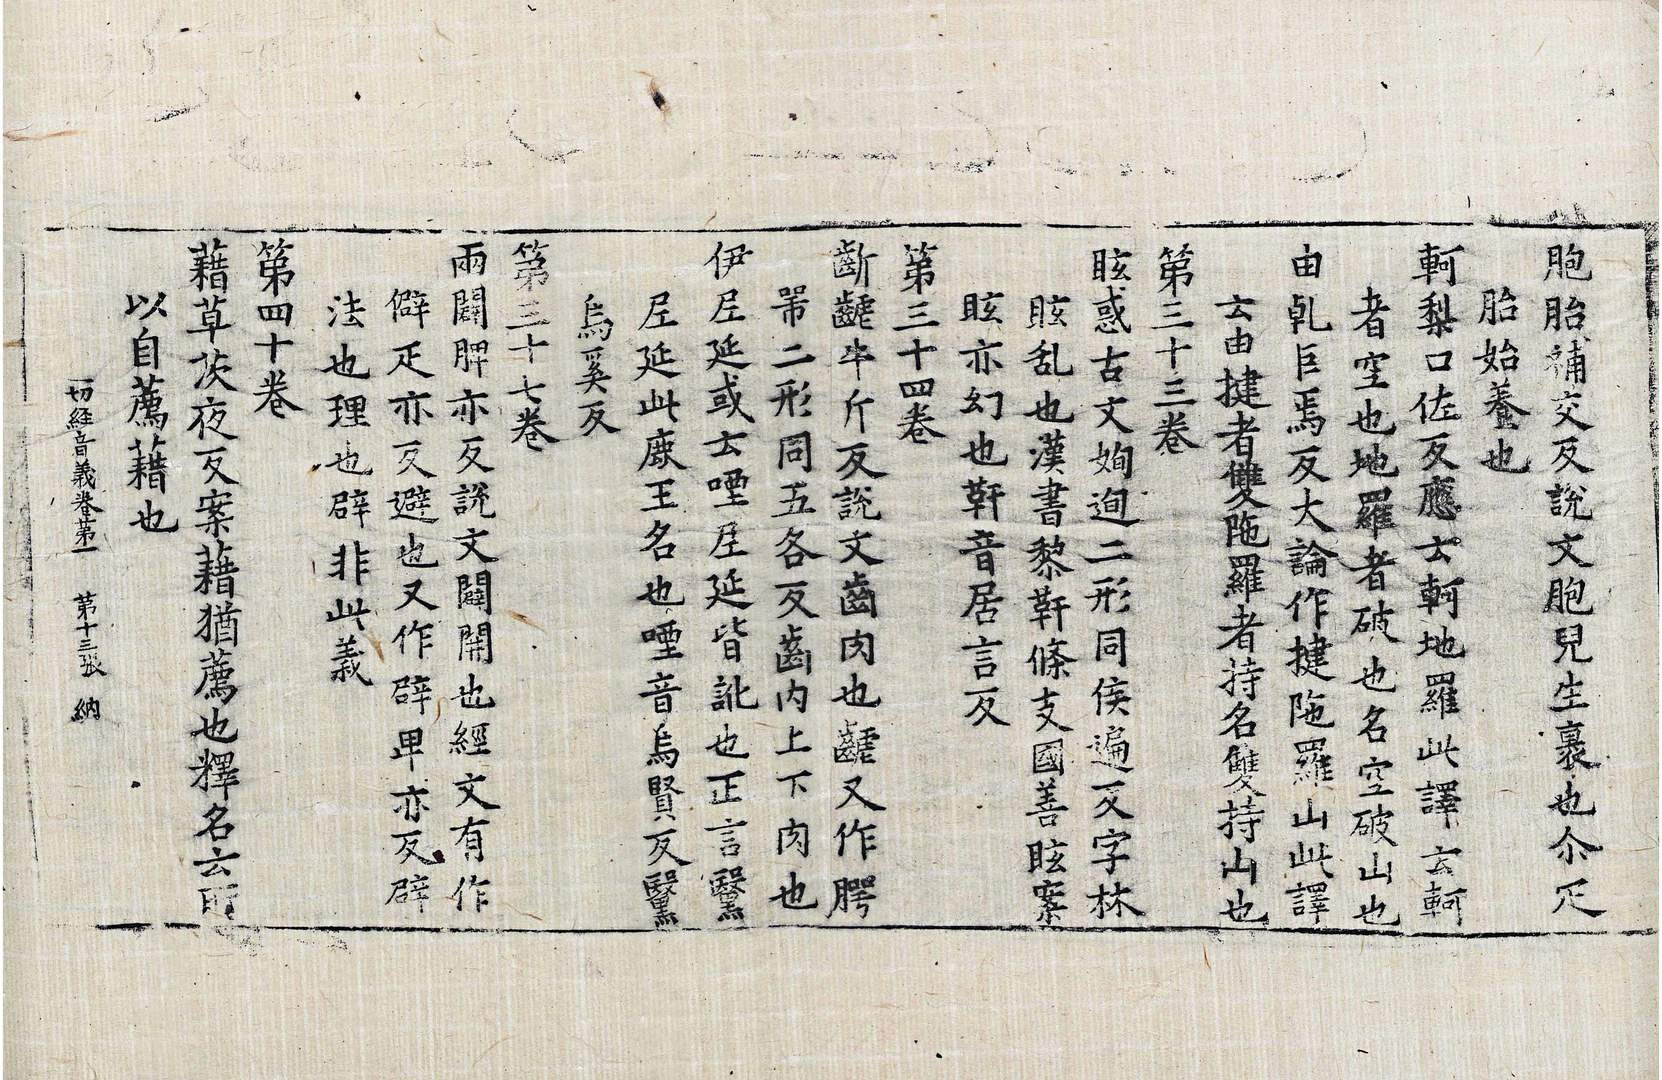 胞胎補交反說文胞兒生裹也尒疋
胎始養也
軻梨口佐反應云軻地羅此譯云軻
者空也地羅者破也名空破山也
由乹巨焉反大論作揵陁羅山此譯
云由揵者雙陁羅者持名雙持山也
第三十三卷
眩惑古文姰迿二形同侯遍反字林
眩乱也漢書黎靬條支國善眩案
眩亦幻也靬音居言反
第三十四卷
齗齶牛斤反說文齒肉也齶又作腭
㖾二形同五各反齒內上下肉也
伊𡰱延或云堙𡰱延皆訛也正言黳
𡰱延此鹿王名也堙音烏賢反黳
烏奚反
第三十七卷
兩闢脾亦反說文闢開也經文有作
僻疋亦反避也又作辟卑亦反辟
法也理也辟非此義
第四十卷
藉草茨夜反案藉猶薦也釋名云所
以自薦藉也
一切經音義卷第一 第十三張 納